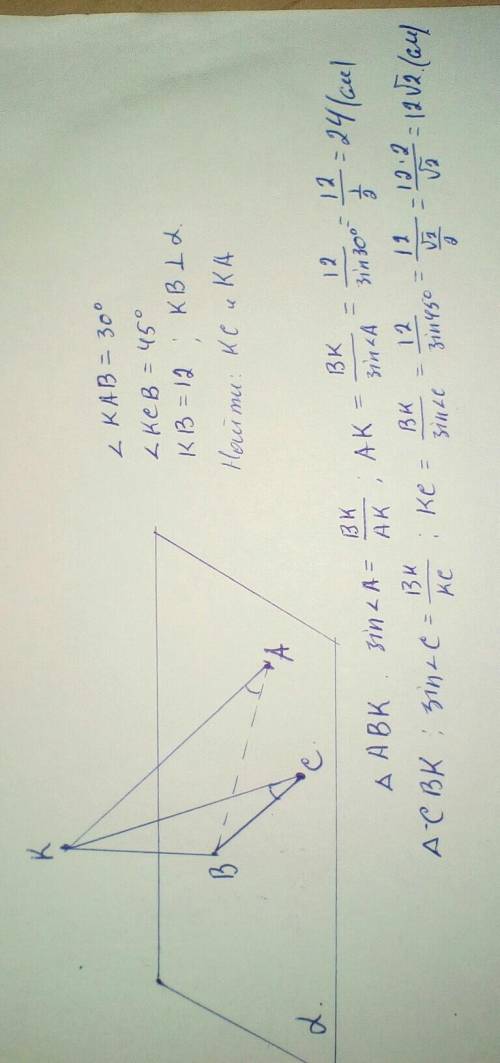 ∠ KAB = 30°
∠ KCB = 45°
KB = 12 ; KB ⊥ α.
Найти: KC и KA
K
B
A
C
α.
△ ABK. sin∠A = BK/AK ; AK = BK/sin∠A = 12/sin30° = 12/(1/2) = 24 (см)
△ CBK ; sin∠C = BK/KC ; KC = BK/sin∠C = 12/sin45° = 12/(√2/2) = 12·2/√2 = 12√2 (см)